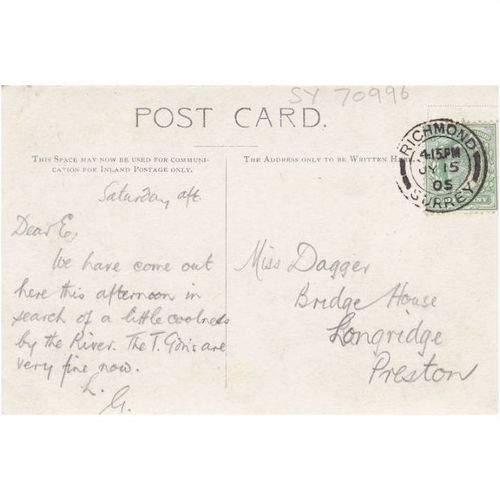 SY 70996
POST CARD.
THIS SPACE MAY NOW BE USED FOR COMMUNI-
CATION FOR INLAND POSTAGE ONLY.
THE ADDRESS ONLY TO BE WRITTEN HERE
RICHMOND
4.15PM
JY 15
05
SURREY
Saturday aft
Dear E,
We have come out
here this afternoon in
search of a little coolness
by the River. The T. Gdns are
very fine now.
L.
G.
Miss Dagger
Bridge House
Longridge
Preston